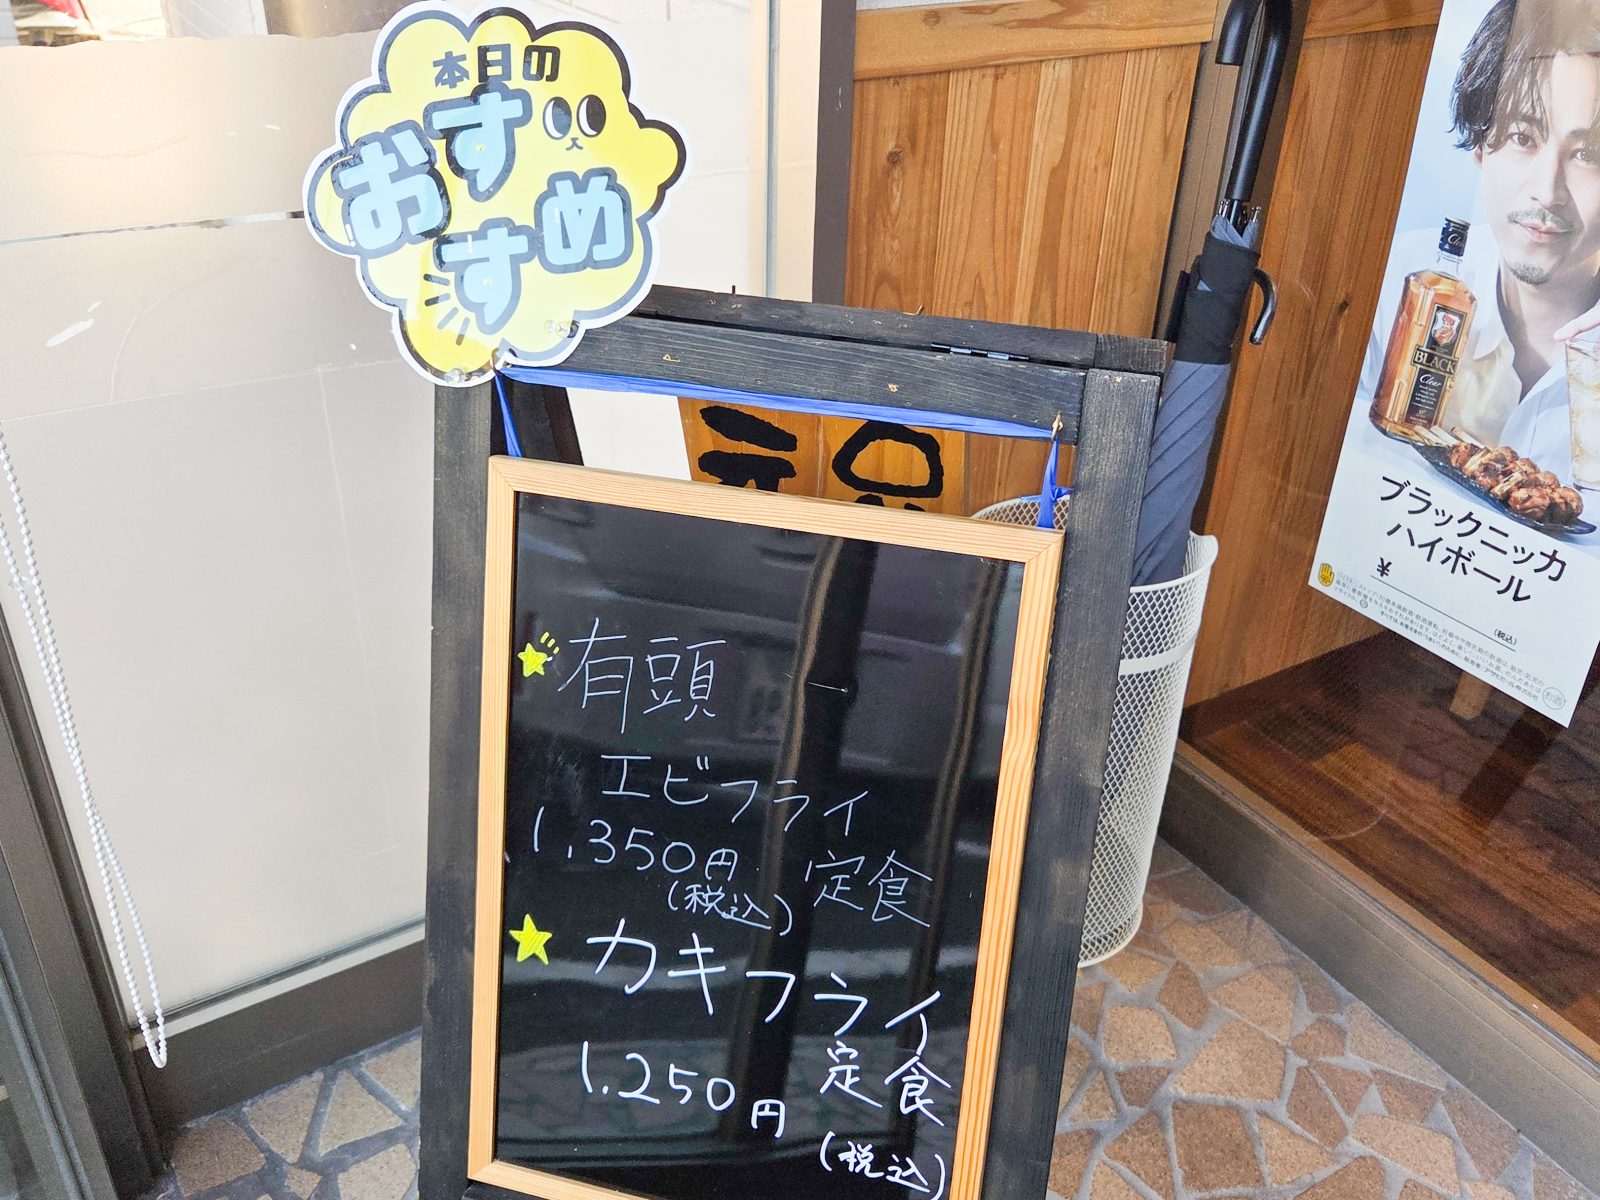 本日の
おすすめ
有頭
エビフライ
1,350円 定食
(税込)
カキフライ
定食
1,250円
(税込)
BLACK
Clear
ブラックニッカ
ハイボール
¥
(税込)
お酒